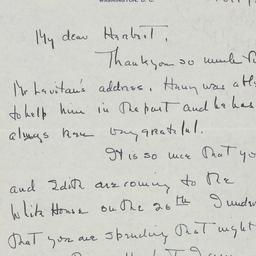 WASHINGTON, D. C.
My dear Herbert,
Thank you so much
Mr Levitan's address. Harry was able
to help him in the past and he has
always been very grateful.
It is so nice that you
and Edith are coming to the
White House on the 26th I
that you are spending that night